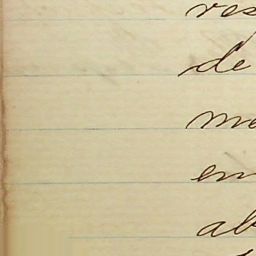 res
de
me
en
ab